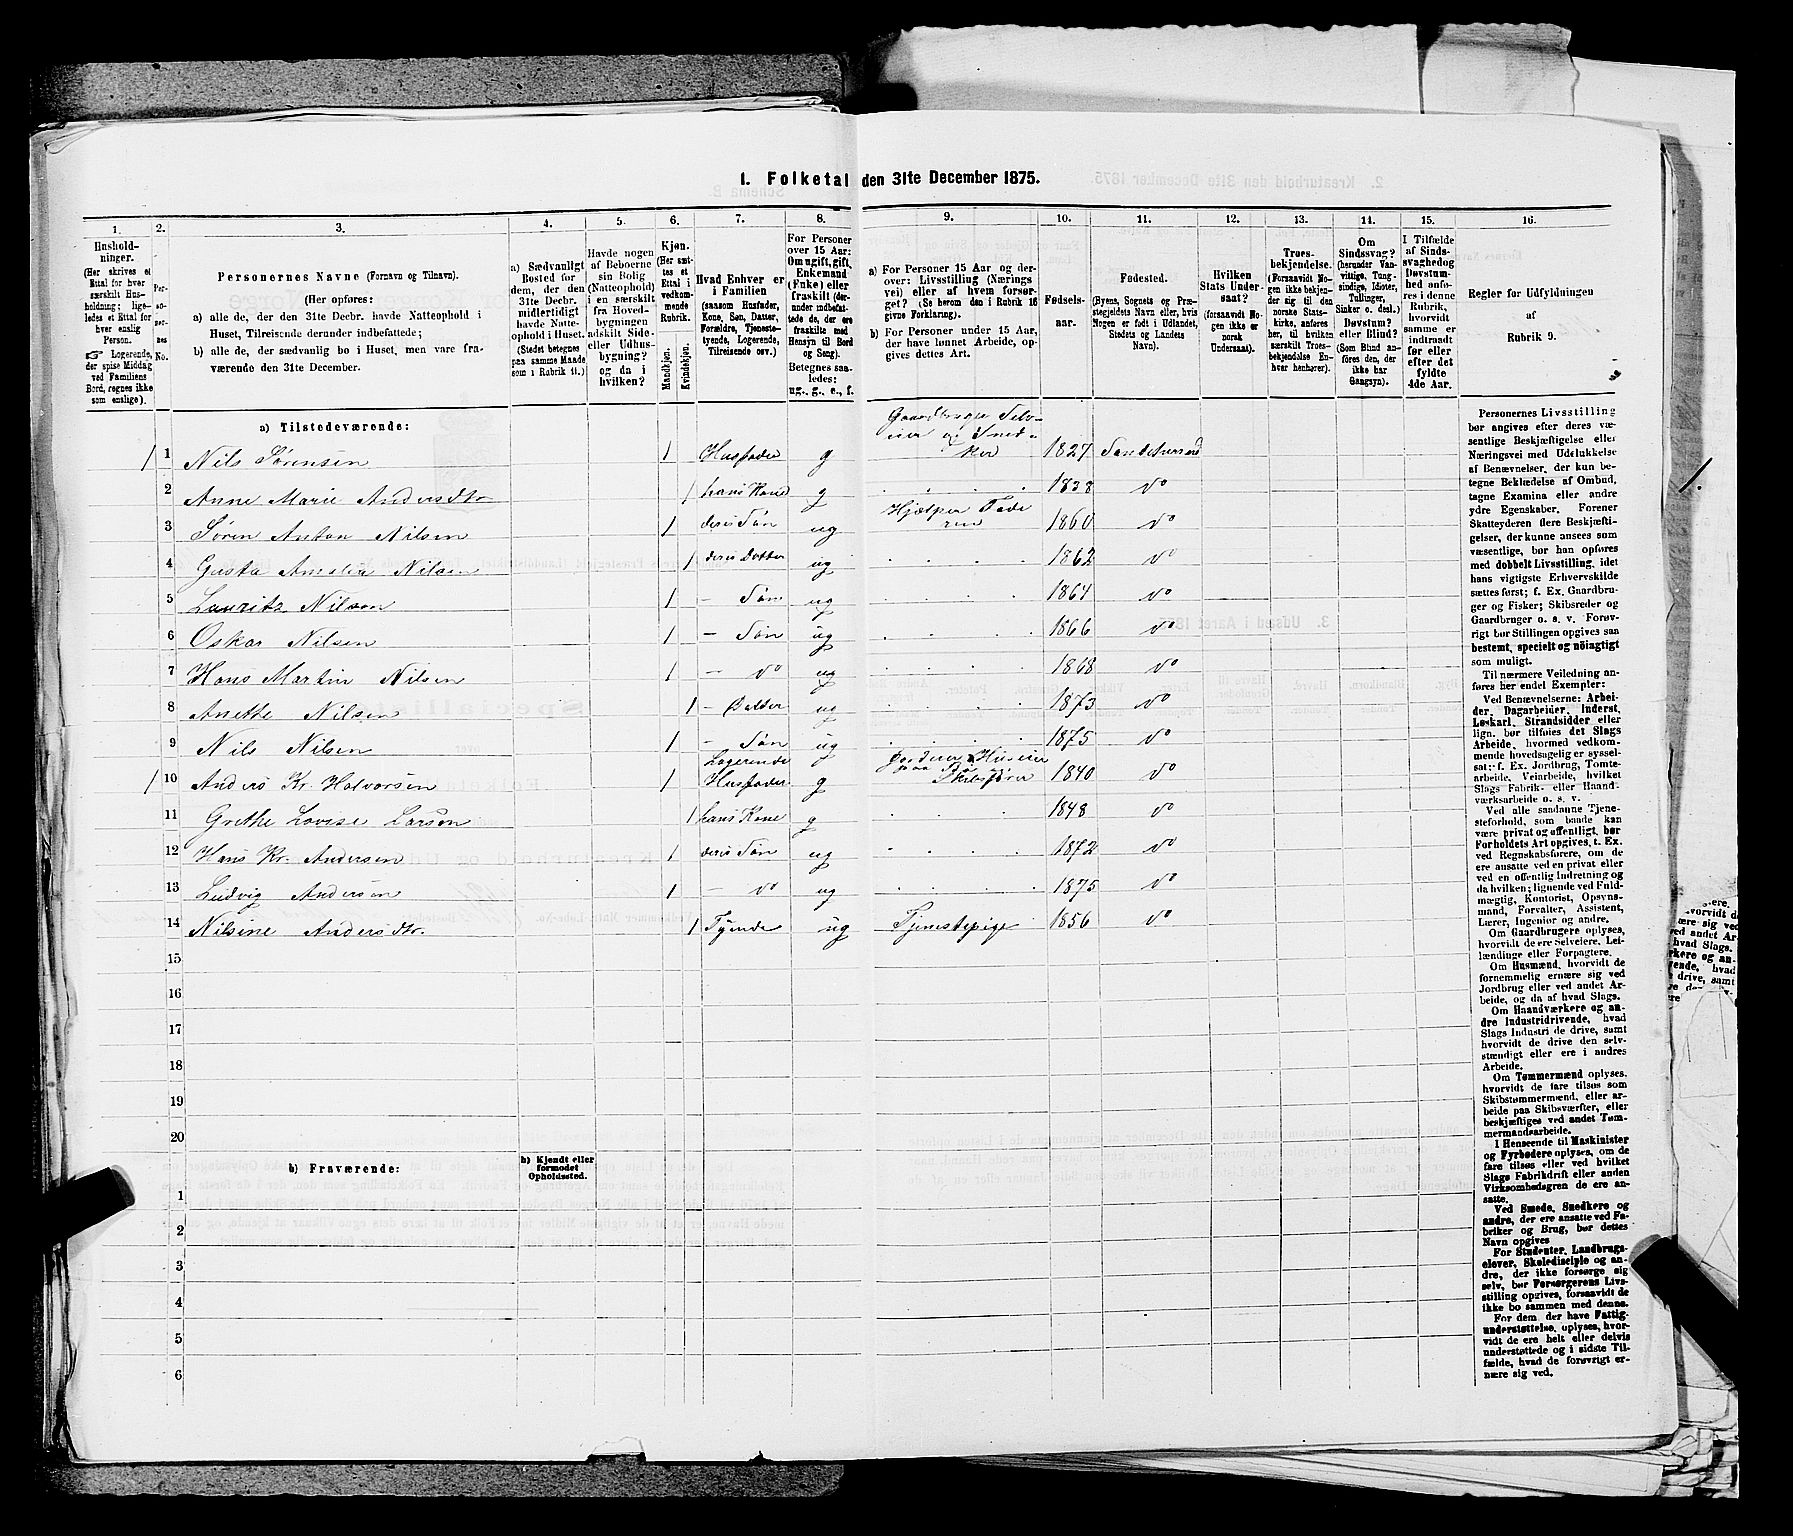 1. Folketal den 31te December 1875.
1. 2. 3. 4. 5. 6. 7. 8. 9. 10. 11. 12. 13. 14. 15. 16.
Hushold-
ninger.
(Her skrives et
Ettal for hver
særskilt Hus-
holdning; lige-
ledes et Ettal for
hver enslig
Person.
☞ Logerende,
der spise Middag
ved Familiens
Bord, regnes ikke
som enslige).
Per-
so-
ner-
nes
No.
Personernes Navne (Fornavn og Tilnavn).
(Her opføres:
a) alle de, der den 31te Decbr. havde Natteophold i
Huset, Tilreisende derunder indbefattede;
b) alle de, der sædvanlig bo i Huset, men vare fra-
værende den 31te December.
a) Sædvanligt
Bosted for
dem, der den
31te Decbr.
midlertidigt
havde Natte-
ophold i Huset.
(Stedet betegnes
paa samme Maade
som i Rubrik 11.)
Havde nogen
af Beboerne
sin Bolig
(Natteophold)
i en særskilt
fra Hoved-
bygningen
adskilt Side-
eller Udhus-
bygning?
og da i
hvilken?
Kjøn.
(Her sæt-
tes et
Ettal i
vedkom-
mende
Rubrik.
Mandkjøn.
Kvindekjøn.
Hvad Enhver er
i Familien
(saasom Husfader,
Kone, Søn, Datter,
Forældre, Tjeneste-
tyende, Logerende,
Tilreisende osv.)
For Personer
over 15 Aar:
Om ugift, gift,
Enkemand
(Enke) eller
fraskilt (der-
under indbefat-
tede de, der ere
fraskilte med
Hensyn til Bord
og Seng).
Betegnes saa-
ledes:
ug., g., e., f.
a) For Personer 15 Aar og der-
over: Livsstilling (Nærings
vei) eller af hvem forsør-
get? (Se herom den i Rubrik 16
givne Forklaring).
b) For Personer under 15 Aar,
der have lønnet Arbeide, op-
gives dettes Art.
Fødsels-
aar.
Fødested.
(Byens, Sognets og Præ-
stegjeldets Navn eller, hvis
Nogen er født i Udlandet,
Stedets og Landets
Navn).
Hvilken
Stats Under-
saat?
(forsaavidt No-
gen ikke er
norsk
Undersaat).
Troes-
bekjendelse.
(Forsaavidt No-
gen ikke bekjen-
der sig til den
norske Stats-
kirke, anføres
her, til hvilken
særskilt Troes-
bekjendelse En-
hver henhører).
Om
Sindssvag?
(herunder Van-
vittige, Tung-
sindige, Idioter,
Tullinger,
Sinker o. desl.)
Døvstum?
eller Blind?
(Som Blind an-
føres den, der
ikke har
Gangsyn).
I Tilfælde
af Sinds-
svaghed og
Døvstum-
hed anfø-
res i denne
Rubrik,
hvorvidt
samme er
indtraadt
før eller
efter det
fyldte
4de Aar.
Regler for Udfyldningen
af
Rubrik 9.
a) Tilstedeværende:
1 1 Nils Sørensen 1 Husfader g Gaardbruger Selv- eier og Sned- ker 1827 Sandeherred
2 Anne Marie Andersdtr 1 hans Kone g 1838 do
3 Søren Anton Nilsen 1 deres Søn ug Hjælper Fade ren 1860 do
4 Gusta Amalia Nilsen 1 deres Datter ug 1862 do
5 Lauritz Nilsen 1 – Søn ug 1864 do
6 Oskar Nilsen 1 – Søn ug 1866 do
7 Hans Martin Nilsen 1 – do ug 1868 do
8 Anethe Nilsen 1 – Datter ug 1873 do
9 Nils Nilsen 1 – Søn ug 1875 do
1 10 Anders Kr. Halvorsen 1 Logerende Husfader g Skibsfører 1840 do
11 Grethe Lovise Larsen 1 hans Kone g 1848 do
12 Hans Kr. Andersen 1 deres Søn ug 1872 do
13 Ludvig Andersen 1 – do ug 1875 do
14 Nilsine Andersdtr. 1 Tyende ug Tjenestepige 1856 do
15
16
17
18
19
20
b) Fraværende:
b) Kjendt eller
formodet
Opholdssted.
1
2
3
4
5
6
Personernes Livsstilling
bør angives efter deres væ-
sentlige Beskjæftigelse eller
Næringsvei med Udelukkelse
af Benævnelser, der kun be-
tegne Beklædelse af Ombud,
tagne Examina eller andre
ydre Egenskaber. Forener
Skatteyderen flere Beskjæfti-
gelser, der kunne ansees som
væsentlige, bør han opføres
med dobbelt Livsstilling, idet
hans vigtigste Erhvervskilde
sættes først; f. Ex. Gaardbru-
ger og Fisker; Skibsreder og
Gaardbruger o. s. v. Forøv-
rigt bør Stillingen opgives saa
bestemt, specielt og nöiagtigt
som muligt.
Til nærmere Veiledning an-
føres her endel Exempler:
Ved Benævnelserne: Arbei-
der, Dagarbeider, Inderst,
Løskarl, Strandsidder eller
lign. bør tilføies det Slags
Arbeide, hvormed vedkom-
mende hovedsagelig er syssel-
sat: f. Ex. Jordbrug, Tomte-
arbeide, Veiarbeide, hvilket
Slags Fabrik- eller Haand-
værksarbeide o. s. v.
Ved alle saadanne Tjene-
steforhold, som baade kan
være privat og offentligt, bør
Forholdets Art opgives, t. Ex.
ved Regnskabsførere, om de
ere ansatte ved en privat eller
ved en offentlig Indretning og
da hvilken; lignende ved Fuld-
mægtig, Kontorist, Opsyns-
mand, Forvalter, Assistent,
Lærer, Ingeniør og andre.
Om Gaardbrugere oplyses,
hvorvidt de ere Selveiere, Lei-
lændinge eller Forpagtere.
Om Husmænd, hvorvidt de
fornemmelig ernære sig ved
Jordbrug eller ved andet Ar-
beide, og da af hvad Slags.
Om Haandværkere og an-
dre Industridrivende, hvad
Slags Industri de drive, samt
hvorvidt de drive den selv-
stændigt eller ere i andres
Arbeide.
Om Tømmermænd oplyses,
hvorvidt de fare tilsøs som
Skibstømmermænd, eller ar-
beide paa Skibsværfter, eller
beskjæftiges ved andet Tøm-
mermandsarbeide.
I Henseende til Maskinister
og Fyrbødere oplyses, om de
fare tilsøs eller ved hvilket
Slags Fabrikdrift eller anden
Virksomhedsgren de ere an-
satte.
Ved Smede, Snedkere og
andre, der ere ansatte ved Fa-
briker og Brug, bør dettes
Navn opgives
For Studenter, Landbrugs-
elever, Skoledisciple og an-
dre, der ikke forsørge sig
selv, bør Forsørgerens Livs-
stilling opgives, forsaavidt de
ikke bo sammen med denne.
For dem, der have Fattig-
understøttelse, oplyses, hvor-
vidt de ere helt eller delvis
understøttede og i sidste Til-
fælde, hvad de forøvrigt er-
nære sig ved.